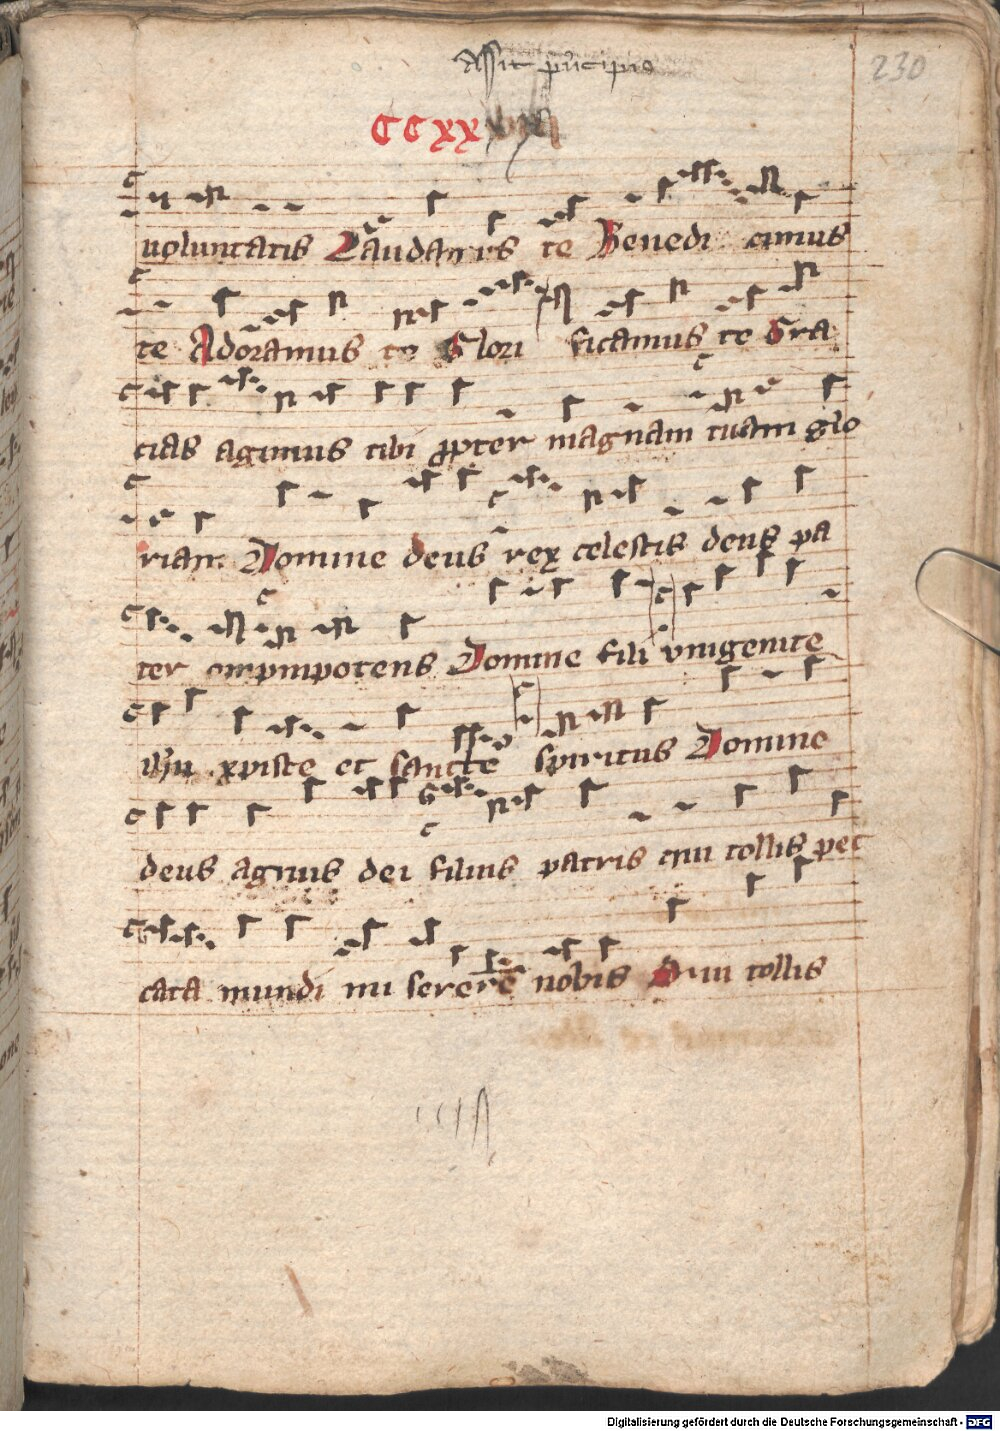 Assit principio
230
CCxx
uoluntatis Laudamus te Benedi cimus
te Adoramus te Glori ficamus te Gra
cias agimus tibi propter magnam tuam glo
riam Domine deus rex celestis deus pa
ter omnipotens Domine fili vnigenite
ihu xpiste et sancte spiritus Domine
deus agnus dei filius patris qui tollis pec
cata mundi mi serere nobis Qui tollis
Digitalisierung gefördert durch die Deutsche Forschungsgemeinschaft - DFG